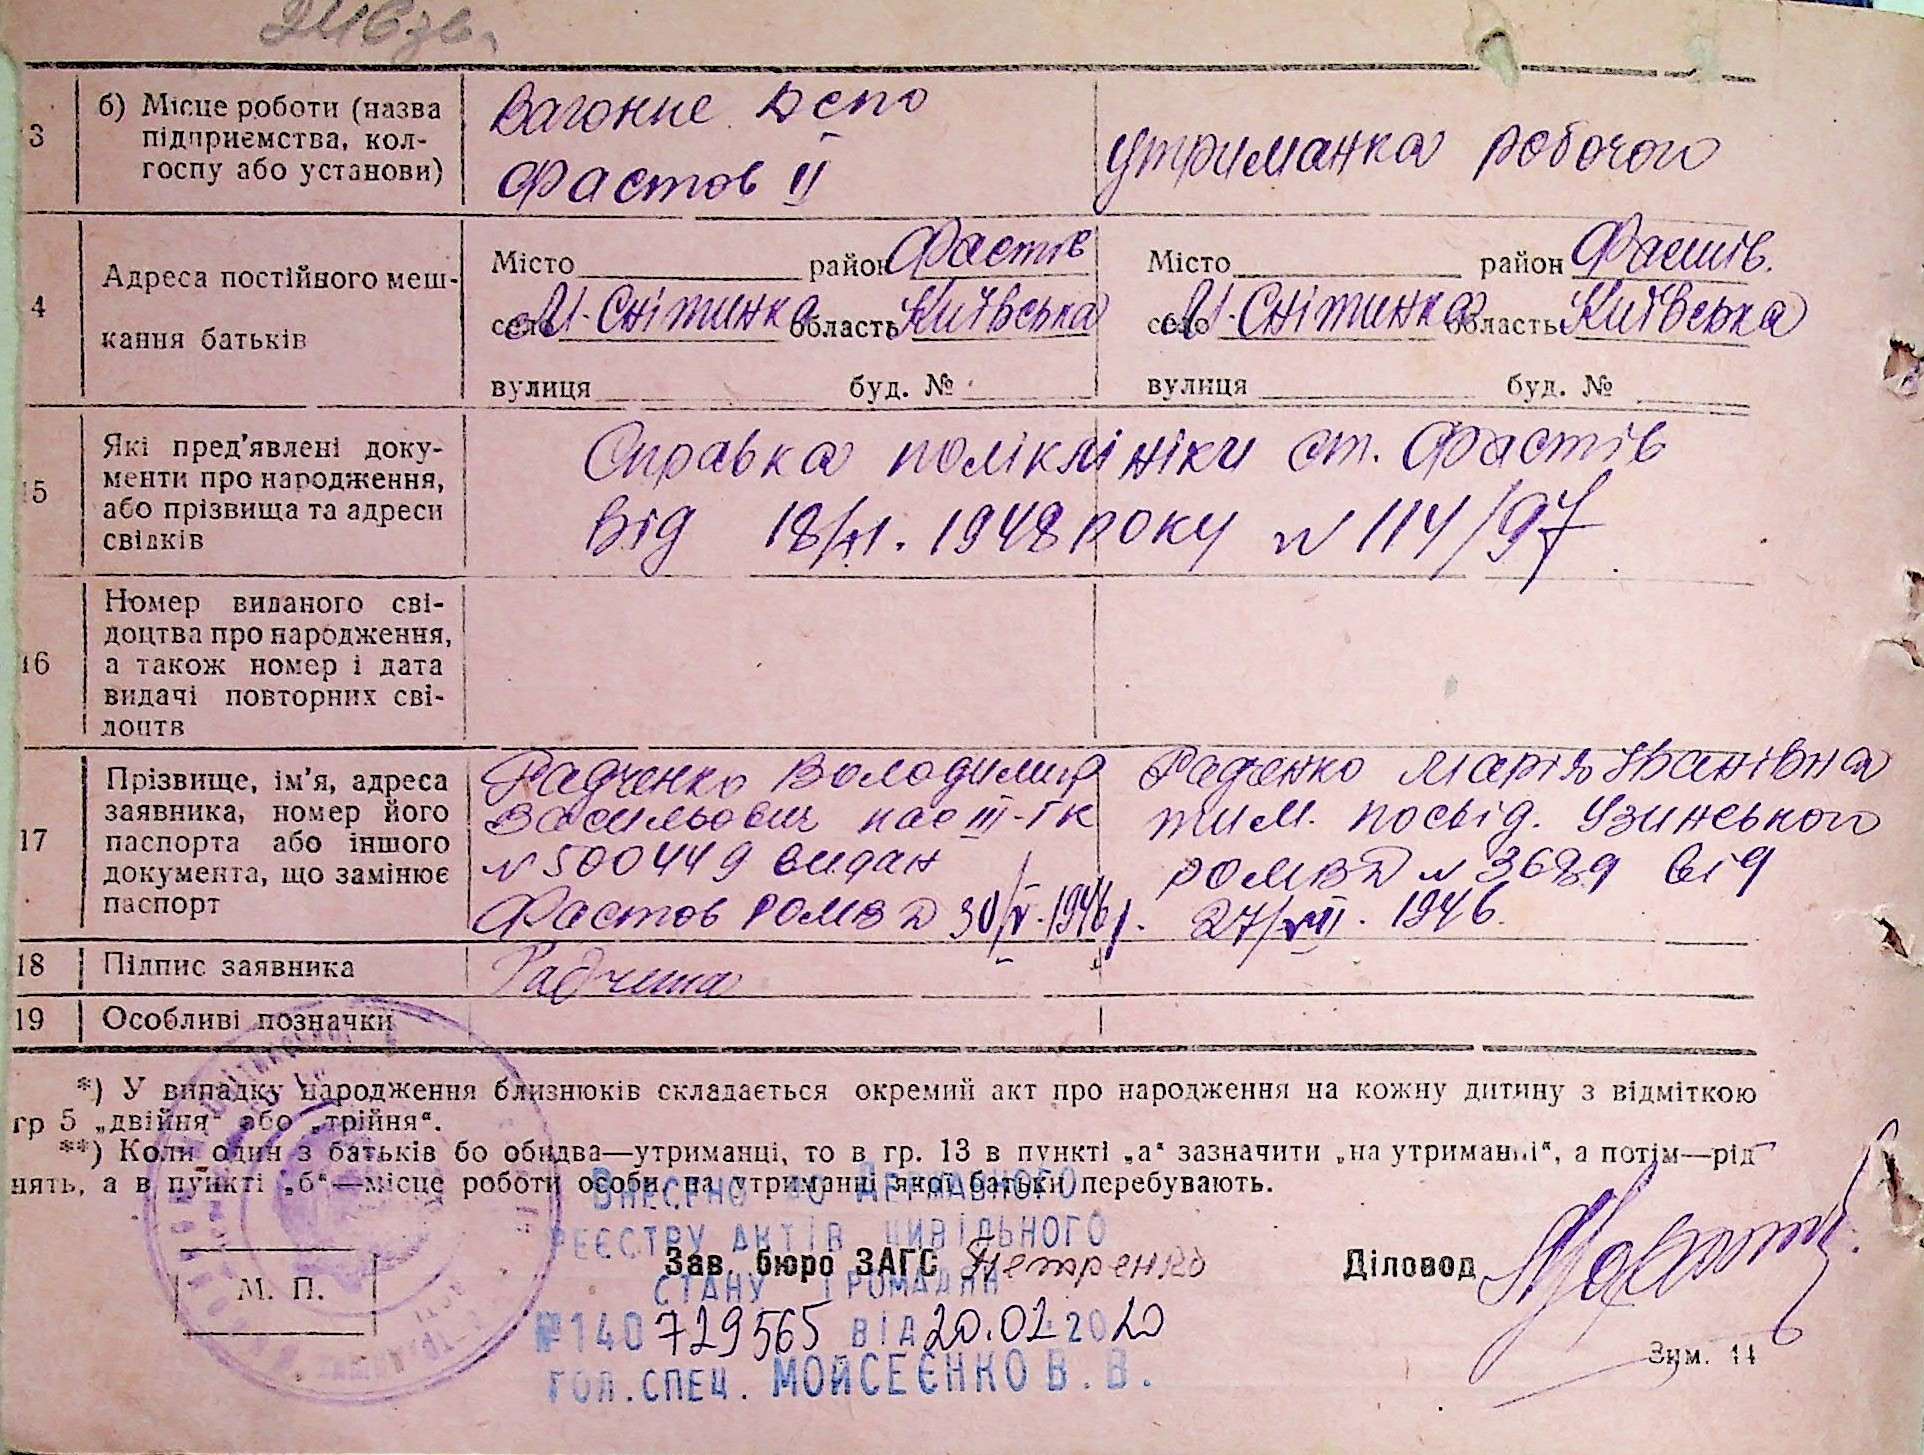 3 б) Місце роботи (назва підприємства, колгоспу або установи)
Вагонне Депо
Фастов ІІ
утриманка робочого
4 Адреса постійного мешкання батьків
Місто район Фастів
село М-Снітинка область Київська
вулиця буд. №
Місто район Фастів.
село М-Снітинка область Київська
вулиця буд. №
15 Які пред'явлені документи про народження, або прізвища та адреси свідків
Справка поліклініки ст. Фастів
від 18/VI. 1948 року N 114/97
16 Номер виданого свідоцтва про народження, а також номер і дата видачі повторних свідоцтв
17 Прізвище, ім'я, адреса заявника, номер його паспорта або іншого документа, що замінює паспорт
Радченко Володимир
Васильович пас ІІІ-ГК
N 500449 видан
Фастов РОМВД 30/V-1946 р.
Радченко Марія Іванівна
тим. посвід. Узинського
РОМВД N 3689 від
27/VIII. 1946.
18 Підпис заявника
19 Особливі позначки
*) У випадку народження близнюків складається окремий акт про народження на кожну дитину з відміткою
гр 5 „двійня“ або „трійня“.
**) Коли один з батьків бо обидва—утриманці, то в гр. 13 в пункті „а“ зазначити „на утриманні“, а потім—рід
нять, а в пункті „б“—місце роботи особи, на утриманці якої батьки перебувають.
ВНЕСЕНО ДО ДЕРЖАВНОГО
РЕЄСТРУ АКТІВ ЦИВІЛЬНОГО
Зав. бюро ЗАГС Петренко Діловод
СТАНУ ГРОМАДЯН
М. П.
№140729565 від 20.02 2020
Зим. 14
ГОЛ.СПЕЦ. МОЙСЕЄНКО В. В.